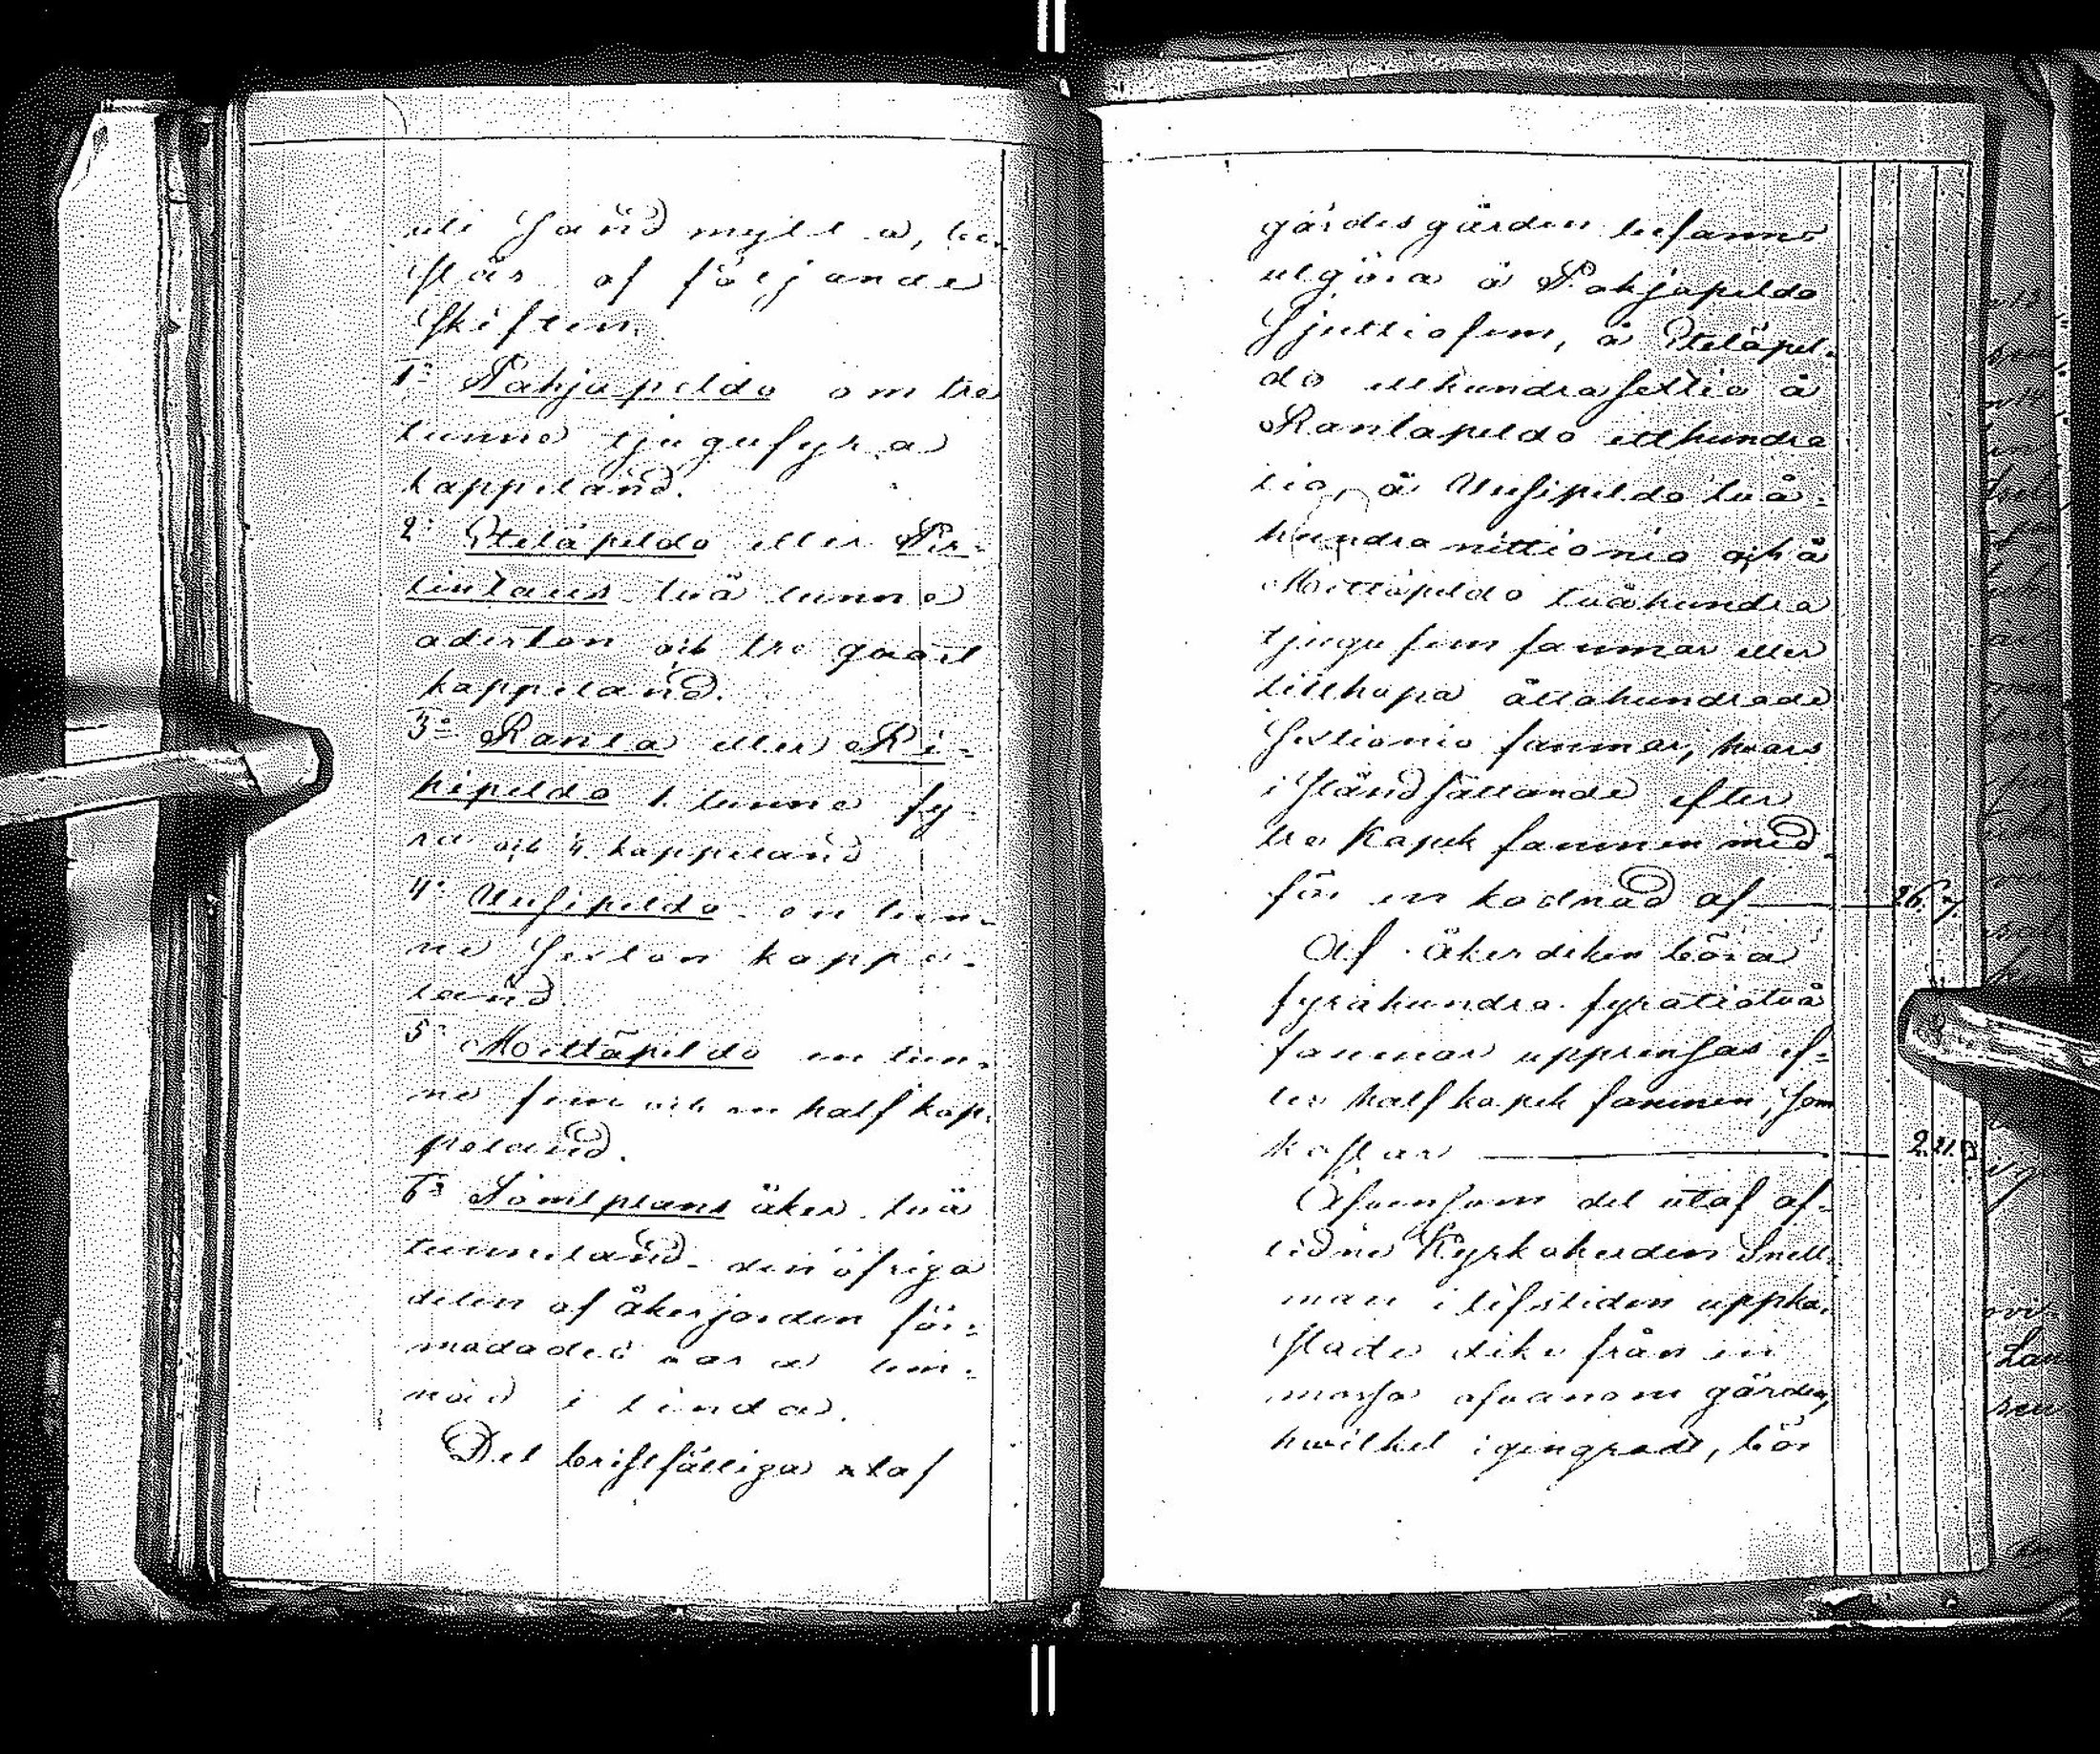 uti Sand mylla, be-
står af följande
Skiften.
1:o Pohjapeldo om tre
tunne tjugufyra
kappeland.
2:o Eteläpeldo eller Pir-
tintaus två tunne
aderton och tre qvart
kappeland.
3:o Ranta eller Ri-
hipeldo 1. tunne fy-
ra och 1/4 kappeland
4:o Uusipeldo en tun-
ne Sexton kappe-
land.
5:o Mettäpeldo en tun-
ne fem och en half kap-
peland.
6:o Tomtplans åker två
tunneland den öfriga
delen af åkerjorden för-
modades vara lem-
nad i linda.
Det bristfälliga utaf
gärdesgården befanns
utgöra å Pohjapeldo
Sjuttiofem, å Eteläpel-
do etthundrasextio å
Rantapeldo etthundra
tio, å Uusipeldo två-
hundranittionio och å
Mettäpeldo tvåhundra
tjugufem famnar eller
tillhopa åttahundrade
Sextionio famnar, hvars
iståndsättande efter
tre Kopek famnen med-
för en kostnad af 26. 7.
Af åkerdiken böra
fyrahundra fyratiotvå
famnar upprensas ef-
ter half kopek famnen, som
kostar 2. 21.
Äfvensom det utaf af-
lidne Kyrkoherden Snell-
man i lifstiden uppka-
stade dike från en
mossa ofvanom gärden,
hvilket igengrodt, bör